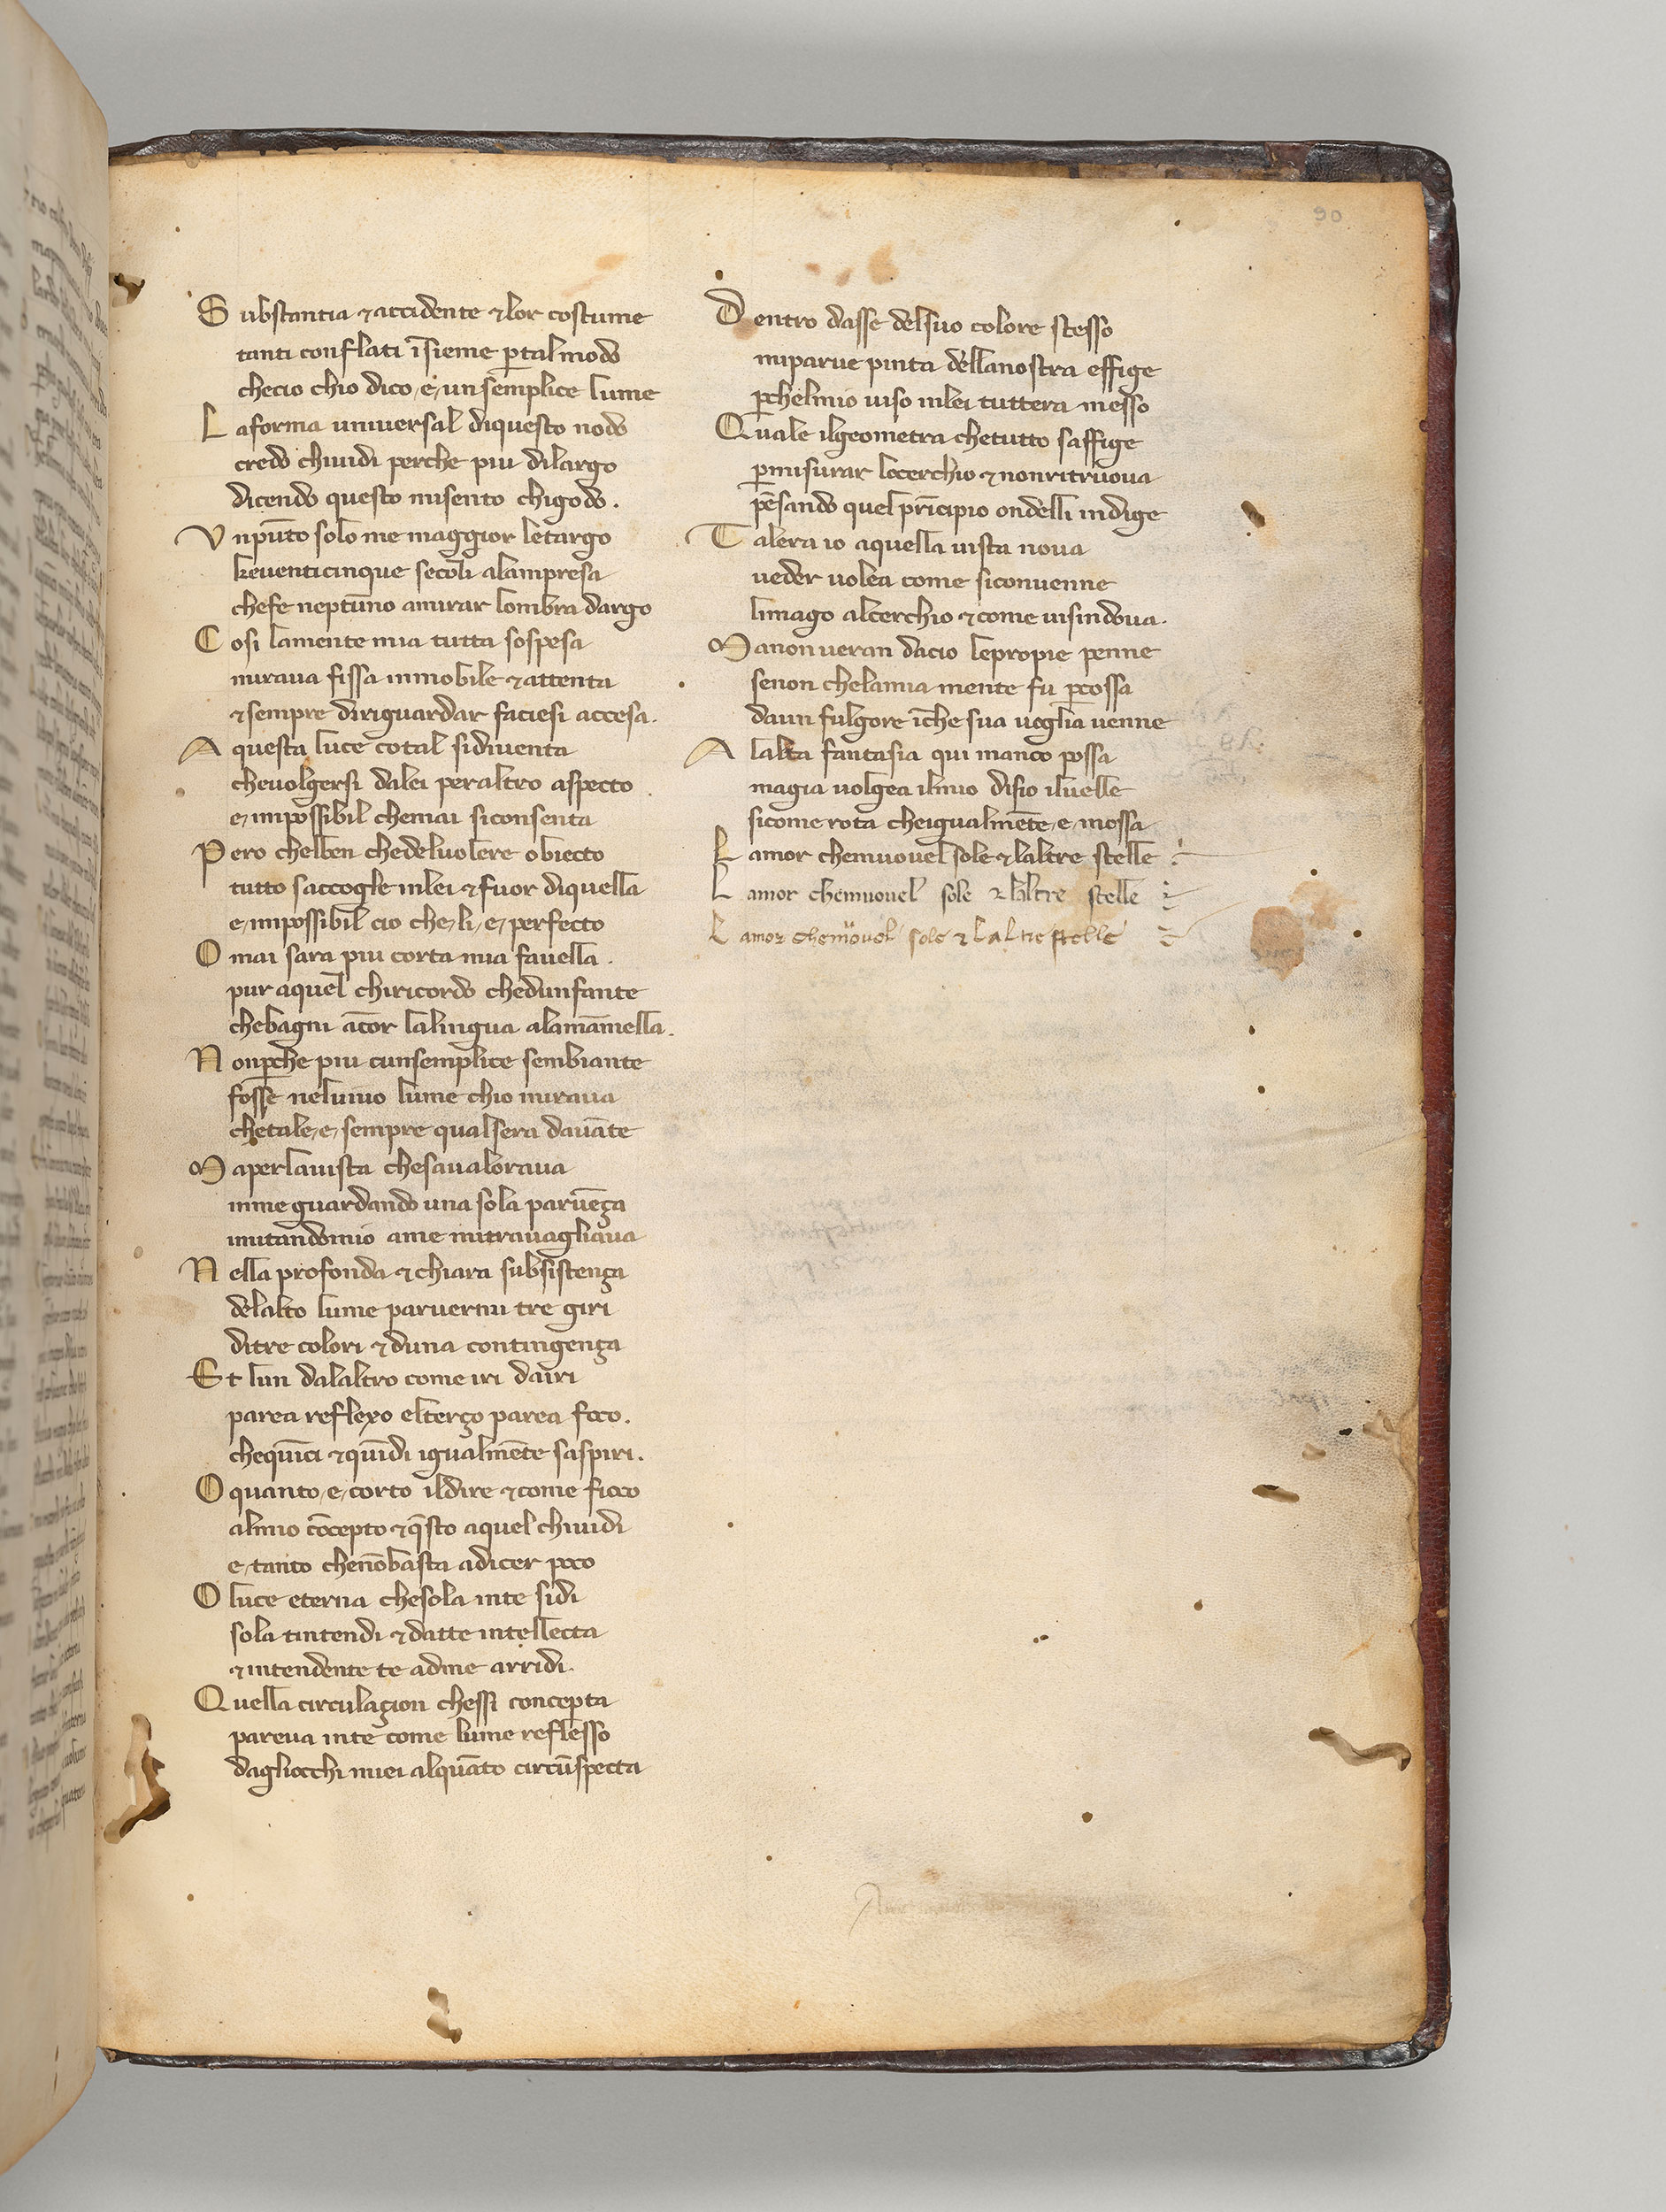 90
Substantia ⁊ accidente ⁊ lor costume
tanti conflati īsieme ꝑtal modo
checio chio dico .e. un semplice lume
Laforma universal diquesto nodo
credo chiuidi perche piu dilargo
dicendo questo misento chigodo.
Vnpūto solo me maggior letargo
keventicinque secoli alampresa
chefe neptūno amirar lombra dargo
Cosi lamente mia tutta sospesa
miraua fissa inmobile ⁊ attenta
⁊ sempre diriguardar faciesi accesa.
A questa luce cotal sidiuenta
cheuolgersi dalei peraltro aspecto
e, impossibil chemai siconsenta
Pero chelben chedeluolere obiecto
tutto saccogle inlei ⁊ fuor diquella
e, impossibil cio che, li, e, perfecto
Omai sara piu corta mia fauella.
pur aquel chiricordo chedunfante
chebagni ācor lalingua alamāmella.
Nonꝑche piu cunsemplice sembiante
fosse neluiuo lume chio miraua
chetale, e, sempre qualsera dauāte
Maperlauista chesaualoraua
inme guardando una sola paruēça
mutandomio ame mitrauagliaua
Nella profonda ⁊ chiara subsistença
delalto lume paruermi tre giri
ditre colori ⁊ duna contingença
Et lun dalaltro come iri dairi
parea reflexo elterço parea foco.
chequīci ⁊ quīdi igualmēte saspiri.
O quanto, e, corto ildire ⁊ come fioco
almio cōcepto ⁊ q̄sto aquel chiuidi
e, tanto chenōbasta adicer poco
O luce eterna chesola inte sidi
sola tintendi ⁊ datte intellecta
⁊ intendente te adme arridi.
Quella circulaçion chessi concepta
pareua inte come lume reflesso
dagliocchi miei alquāto circūspecta
Dentro dasse delsuo colore stesso
miparue pinta dellanostra effige
ꝑchelmio uiso inlei tuttera messo
Quale ilgeometra chetutto saffige
ꝑmisurar locerchio ⁊ nonritruoua
pēsando quel prīcipio ondelli indige
Talera io aquella uista noua
ueder uolea come siconuenne
limago alcerchio ⁊ come uisindoua.
Manonueran dacio lepropie penne
senon chelamia mente fu ꝑcossa
daun fulgore īche sua uoglia uenne
A lalta fantasia qui manco possa
magia uolgea ilmio disio iluelle
sicome rota cheigualmēte, e, mossa
Lamor chemuouel sole ⁊ laltre stelle
Lamor chemuouel sole ⁊ laltre stelle
Lamor chemuouel sole ⁊ laltre stelle